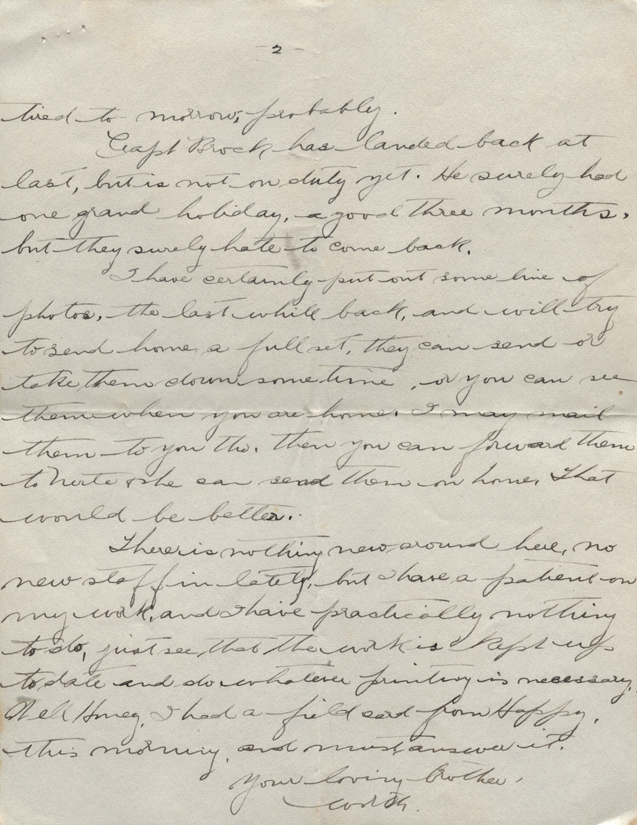 - 2 -
tired to morrow, probably.
Capt Brock has landed back at
last, but is not on duty yet. He surely had
one grand holiday, a good three months,
but they surely hate to come back.
I have certainly put out some line of
photos, the last while back, and will try
to send home a full set, they can send or
take them down sometime, or you can see
them when you are home. I may mail
them to you tho. then you can forward them
to & she can send them on home. That
would be better.
There is nothing new around here, no
new staff in lately, but I have a patient on
my work, and I have practically nothing
to do, just see that the work is kept up
to date and do whatever printing is necessary.
Well Honey, I had a field card from Happy,
this morning, and must answer it.
Your loving brother,